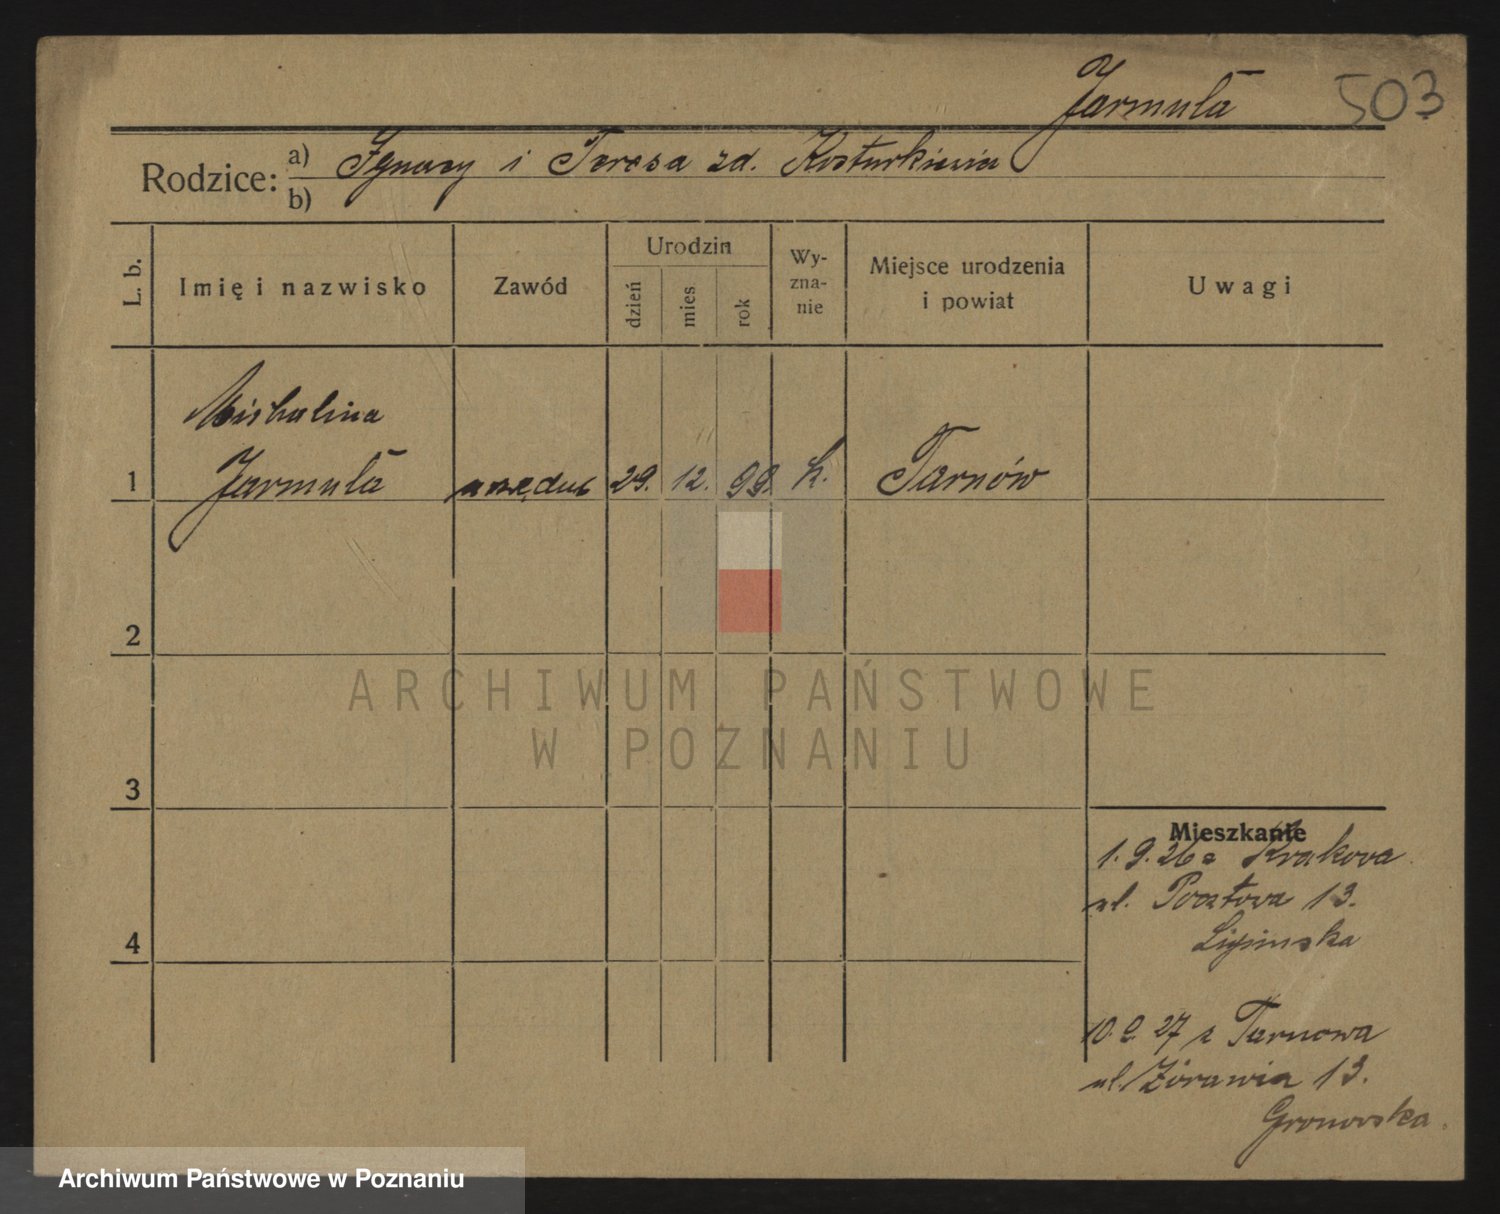 Jarmuła 503
Rodzice: a) Ignacy i Teresa zd. Kosturkiewicz
b)
L. b. Imię i nazwisko Zawód Urodzin dzień mies rok Wy-zna-nie Miejsce urodzenia i powiat Uwagi
Michalina
1 Jarmuła 29. 12. 99. k. Tarnów
2
ARCHIWUM PAŃSTWOWE
W POZNANIU
3
Mieszkanie
1. 9. 26 z Krakowa
ul. Pocztowa 13.
Lipinska
4
10. 9. 27 z Tarnowa
ul. Żórawia 13.
Gronowska.
Archiwum Państwowe w Poznaniu